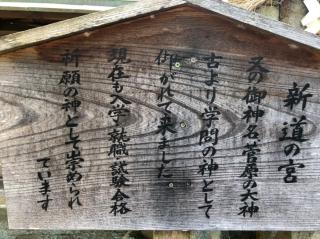 新道の宮
又の御神名 菅原の大神
古より学問の神として
仰がれて来ました
現在も入学 就職 試験合格
祈願の神として崇められ
ています